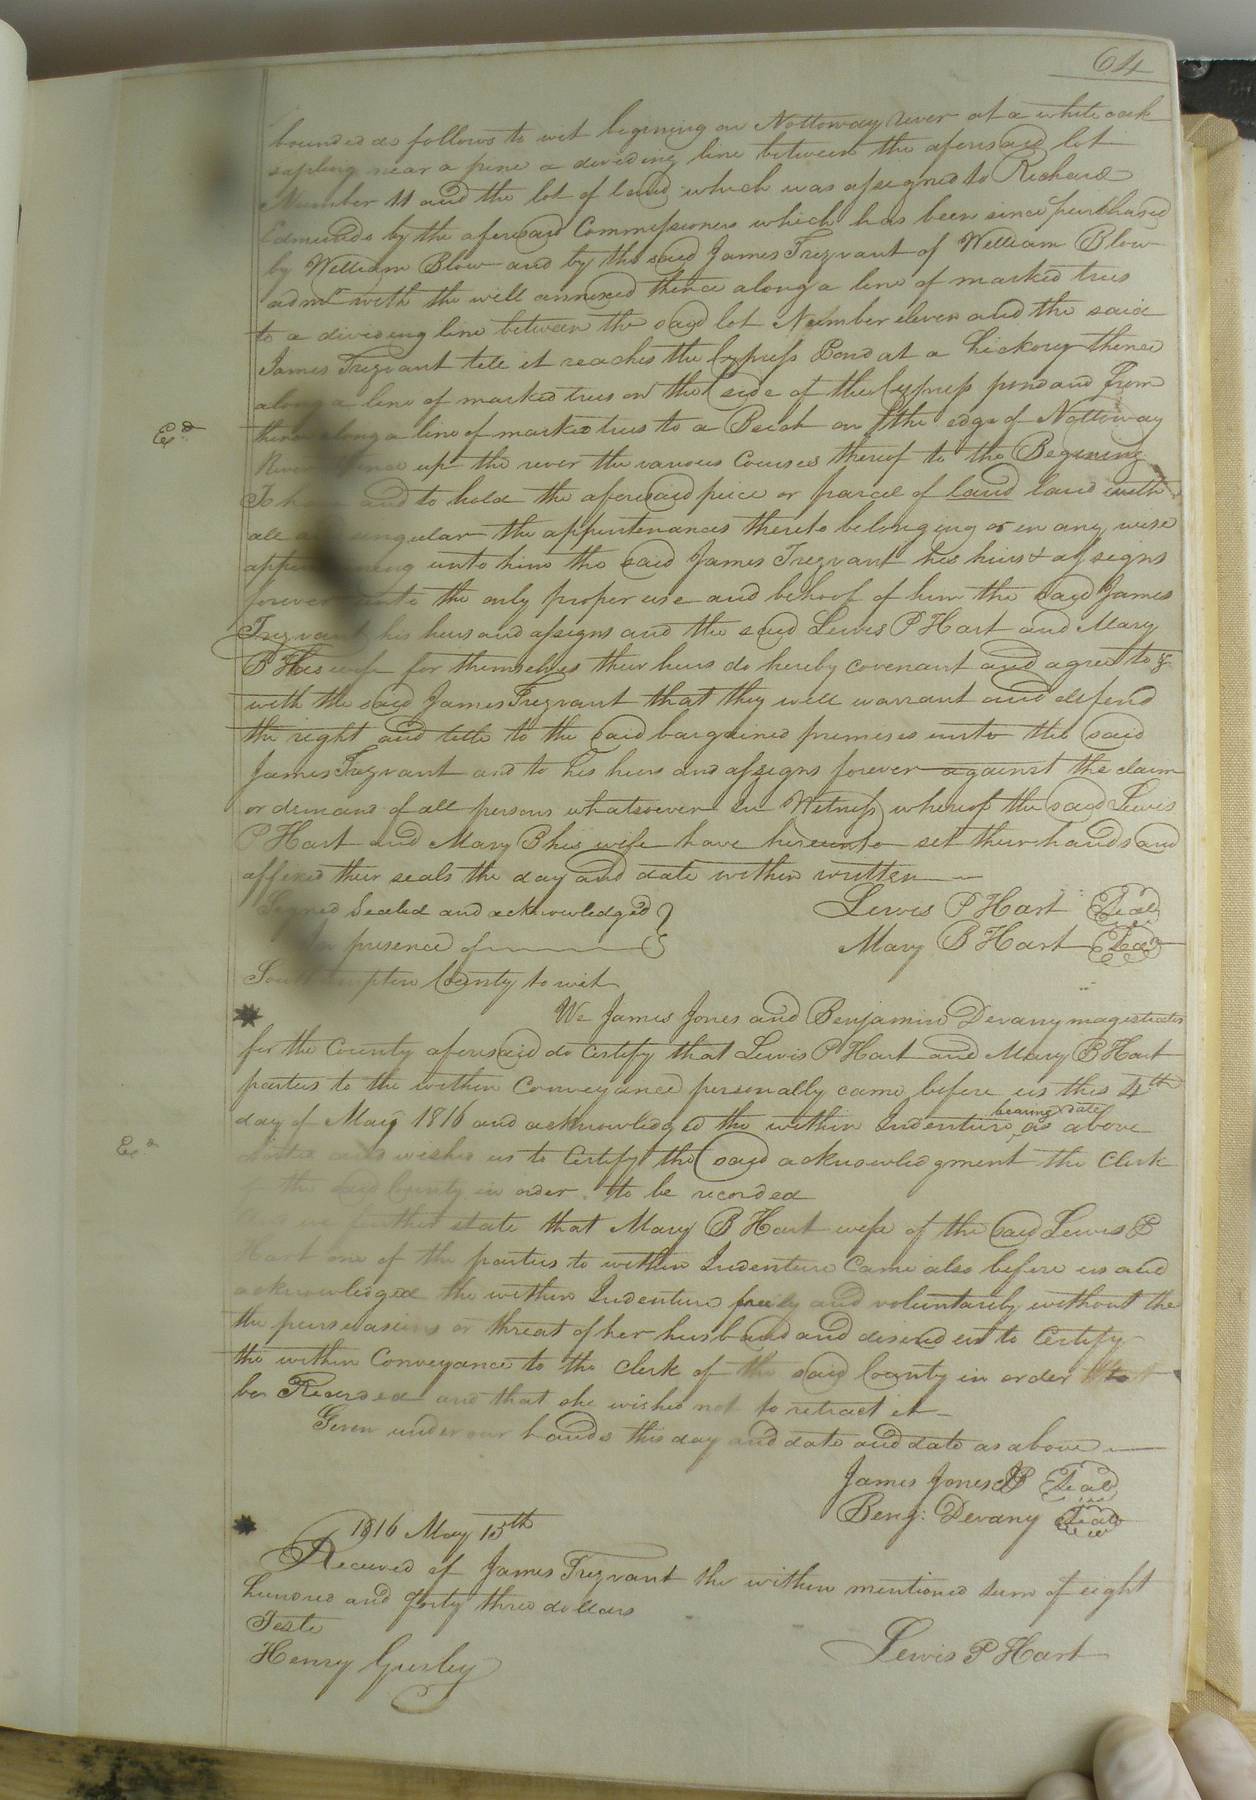 64
bounded as follows to wit begining on Nottoway river at a white oak
sapling near a pine a dividing line between the aforesaid lot
Number 11 and the lot of land which was assigned to Richard
Edmunds by the aforesaid Commissioners which has been since purchased
by William Blow and by the said James Trezvant of William Blow
admr with the will annexed thence along a line of marked trees
to a dividing line between the said lot Number eleven and the said
James Trezvant till it reaches the Cypress Pond at a hickory thence
along a line of marked trees on the side of the Cypress pond and from
thence along a line of marked trees to a Beach on the edge of Nottoway
River thence up the river the various Courses thereof to the Begining
To have and to hold the aforesaid peice or parcel of land land with
all and singular the appurtenances thereto belonging or in any wise
appertaining unto him the said James Trezvant his heirs & assigns
forever unto the only proper use and behoof of him the said James
Trezvant his heirs and assigns and the said Lewis P Hart and Mary
B His wife for themselves their heirs do hereby covenant and agree to &
with the said James Trezvant that they will warrant and defend
the right and title to the said bargained premises unto the said
James Trezvant and to his heirs and assigns forever against the claim
or demand of all persons whatsoever In Witness whereof the said Lewis
P Hart and Mary B his wife have hereunto set their hands and
affixed their seals the day and date within written
Signed Sealed and acknowledged } Lewis P Hart Seal
In presence of Mary B Hart Seal
Southampton County to wit
We James Jones and Benjamin Devany magistrates
for the County aforesaid do Certify that Lewis P Hart and Mary B Hart
parties to the within Conveyance personally came before us this 4th
day of May 1816 and acknowledged the within Indenture bearing date as above
stated and wishes us to Certify the said acknowledgment the Clerk
the said County in order to be recorded
And we further state that Mary B Hart wife of the said Lewis P
Hart one of the parties to within Indenture Came also before us and
acknowledged the within Indenture freely and voluntarily without the
the persuasions or threat of her husband and desired us to Certify
the within Conveyance to the Clerk of the said County in order to
be Recorded and that she wishes not to retract it
Given under our hands this day and date and date as above
James Jones JP Seal
Benj: Devany Seal
1816 May 15th
Received of James Trezvant the within mentioned sum of eight
hundred and forty three dollars
Teste
Henry Gurley Lewis P Hart